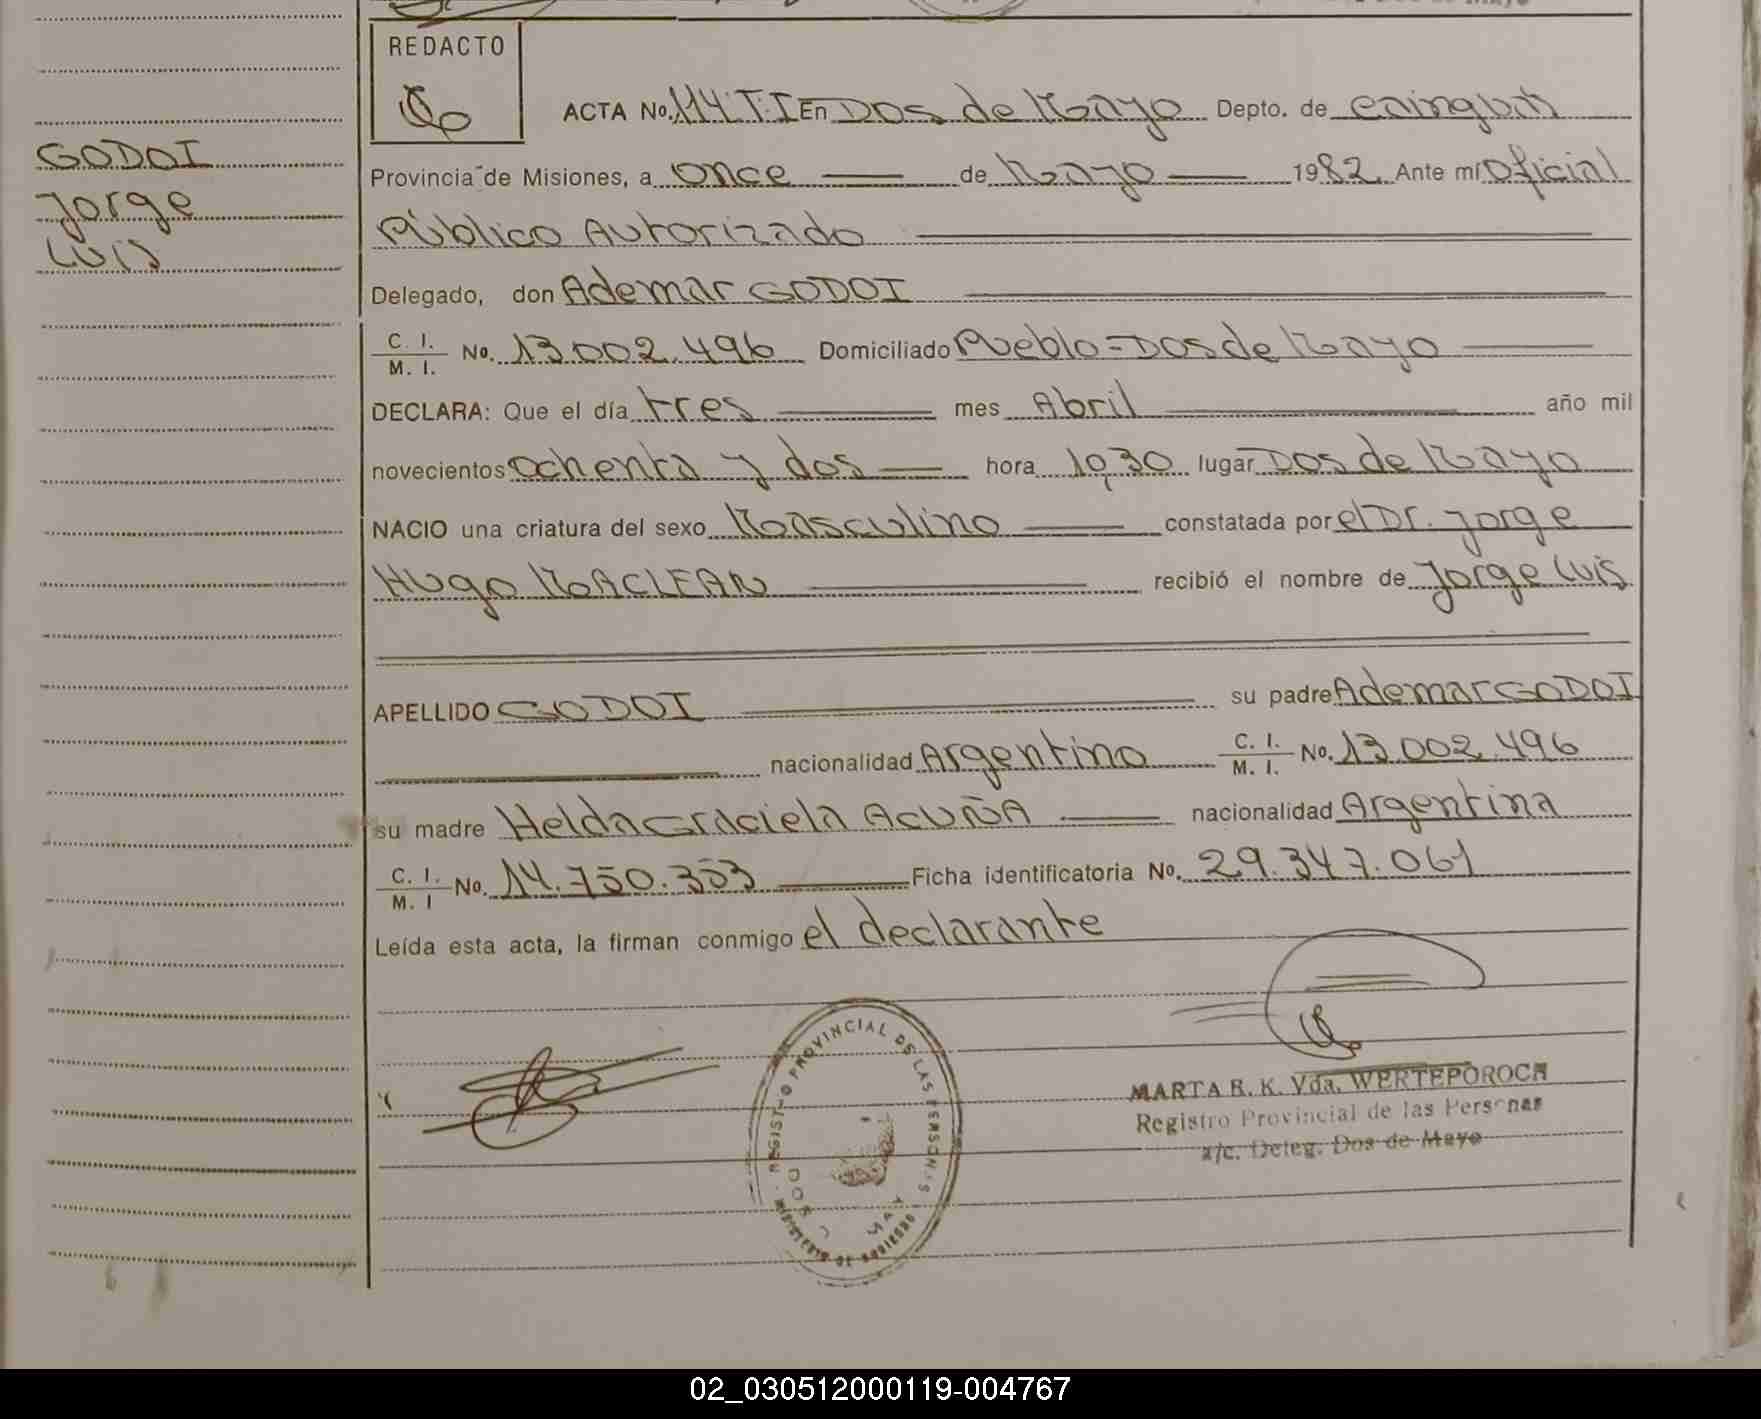 REDACTO
ACTA No. 114 T.I En Dos de Mayo Depto. de Cainguás
GODOI
Jorge
Luis
Provincia de Misiones, a once de Mayo 1982 Ante mí Oficial
Público Autorizado
Delegado, don Ademar GODOI
C. I.
M. I. No. 13.002.496 Domiciliado Pueblo-Dos de Mayo
DECLARA: Que el día tres mes Abril año mil
novecientos ochenta y dos hora 19,30 lugar Dos de Mayo
NACIO una criatura del sexo Masculino constatada por el Dr. Jorge
Hugo MACLEAN recibió el nombre de Jorge Luis
APELLIDO GODOI su padre Ademar GODOI
nacionalidad Argentino C. I.
M. I. No. 13.002.496
su madre Helda Graciela ACUÑA nacionalidad Argentina
C. I.
M. I No. 14.750.353 Ficha identificatoria No. 29.347.061
Leída esta acta, la firman conmigo el declarante
REGISTRO PROVINCIAL DE LAS PERSONAS
DOS
MAY
MARTA R. K. Vda. WERTEPOROCH
Registro Provincial de las Personas
a/c. Deleg. Dos de Mayo
02_030512000119-004767